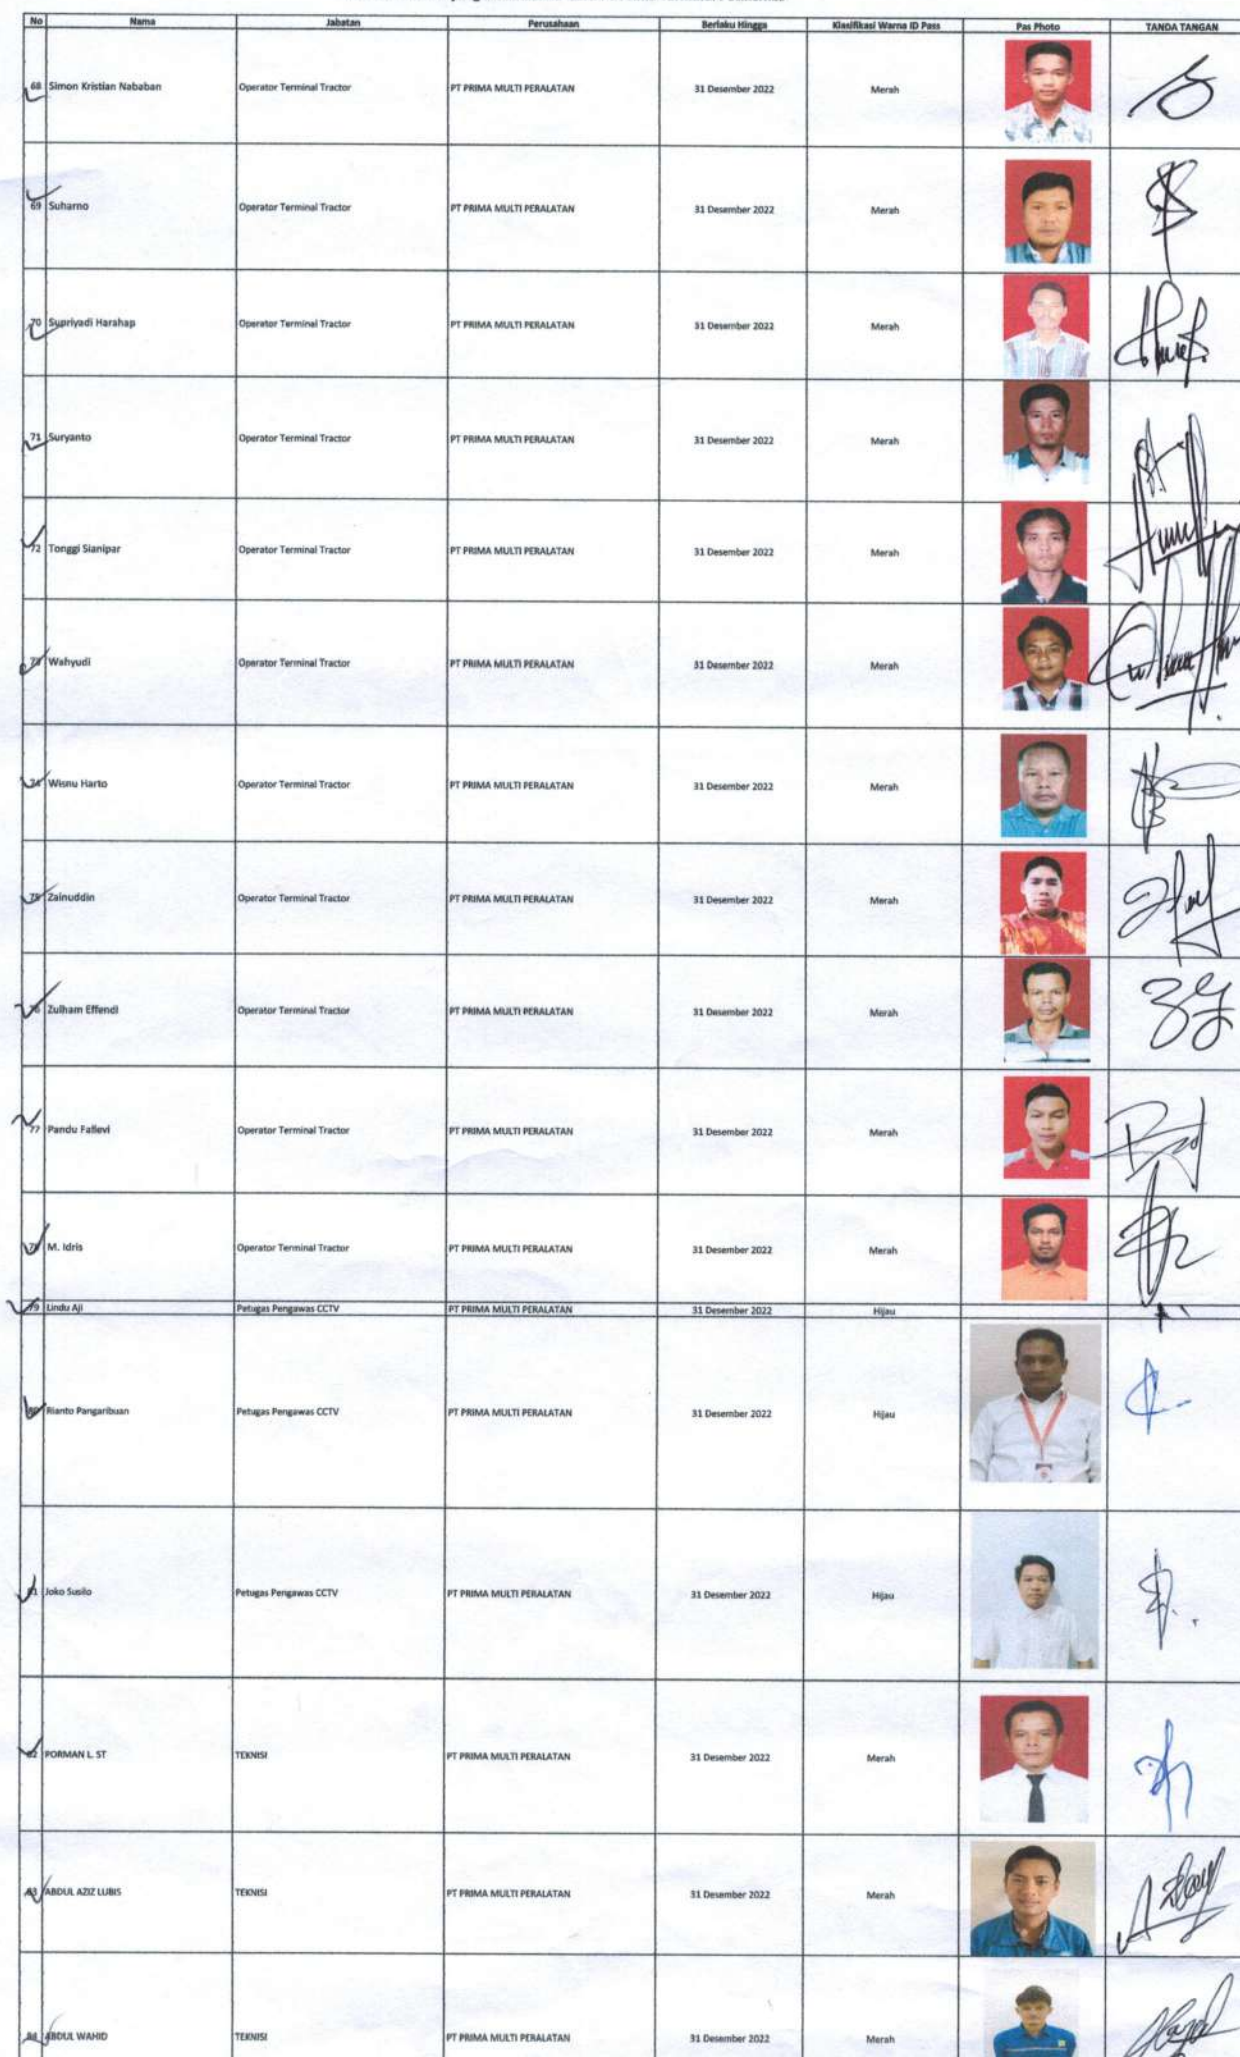 No Nama Jabatan Perusahaan Berlaku Hingga Klasifikasi Warna ID Pass Pas Photo TANDA TANGAN
68 Simon Kristian Nababan Operator Terminal Tractor PT PRIMA MULTI PERALATAN 31 Desember 2022 Merah
69 Suharno Operator Terminal Tractor PT PRIMA MULTI PERALATAN 31 Desember 2022 Merah
70 Supriyadi Harahap Operator Terminal Tractor PT PRIMA MULTI PERALATAN 31 Desember 2022 Merah
71 Suryanto Operator Terminal Tractor PT PRIMA MULTI PERALATAN 31 Desember 2022 Merah
72 Tonggi Sianipar Operator Terminal Tractor PT PRIMA MULTI PERALATAN 31 Desember 2022 Merah
73 Wahyudi Operator Terminal Tractor PT PRIMA MULTI PERALATAN 31 Desember 2022 Merah
74 Wisnu Harto Operator Terminal Tractor PT PRIMA MULTI PERALATAN 31 Desember 2022 Merah
75 Zainuddin Operator Terminal Tractor PT PRIMA MULTI PERALATAN 31 Desember 2022 Merah
76 Zulham Effendi Operator Terminal Tractor PT PRIMA MULTI PERALATAN 31 Desember 2022 Merah
77 Pandu Fallevi Operator Terminal Tractor PT PRIMA MULTI PERALATAN 31 Desember 2022 Merah
78 M. Idris Operator Terminal Tractor PT PRIMA MULTI PERALATAN 31 Desember 2022 Merah
79 Lindu Aji Petugas Pengawas CCTV PT PRIMA MULTI PERALATAN 31 Desember 2022 Hijau
80 Rianto Pangaribuan Petugas Pengawas CCTV PT PRIMA MULTI PERALATAN 31 Desember 2022 Hijau
81 Joko Susilo Petugas Pengawas CCTV PT PRIMA MULTI PERALATAN 31 Desember 2022 Hijau
82 PORMAN L. ST TEKNISI PT PRIMA MULTI PERALATAN 31 Desember 2022 Merah
83 ABDUL AZIZ LUBIS TEKNISI PT PRIMA MULTI PERALATAN 31 Desember 2022 Merah
84 ABDUL WAHID TEKNISI PT PRIMA MULTI PERALATAN 31 Desember 2022 Merah